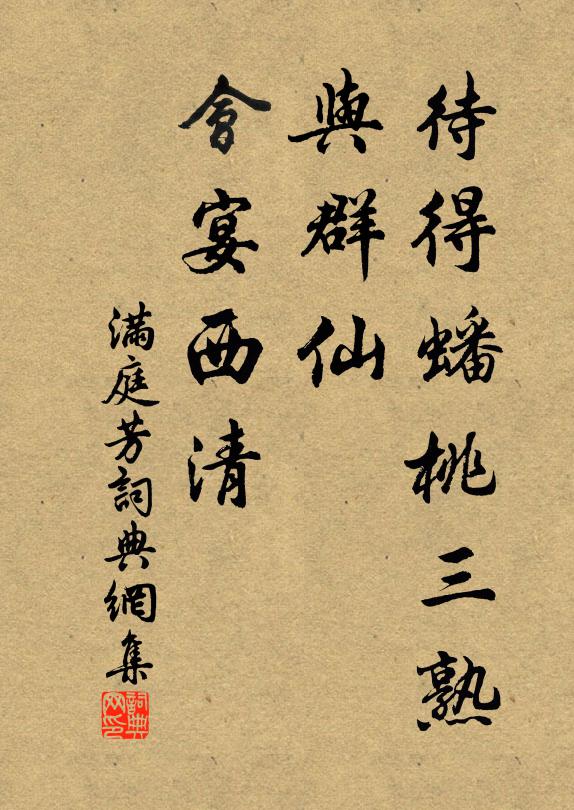 待得蟠桃三熟
與群仙
會宴西清
滿庭芳詞典網集
詞典
网印